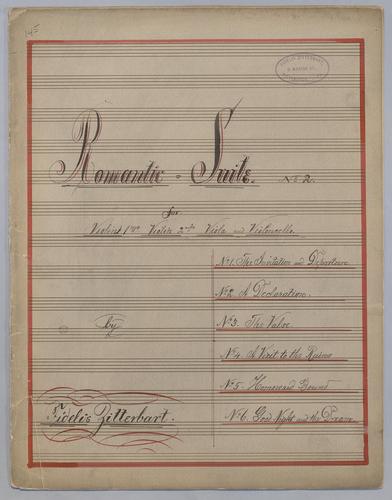 145
FIDELIS ZITTERBART
Romantic = Suite. No 2.
for
Violini 1mo Violin 2do Viola and Violoncello.
No 1. The Invitation and Departure.
No 2. A Declaration.
by
No 3. The Valse
No 4. A Visit to the Ruins
No 5. Homeward Bound
Fidelis Zitterbart.
No 6. Good Night and the Dream.